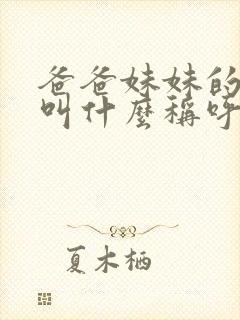 爸爸妹妹的
叫什麼稱呼
夏木栖